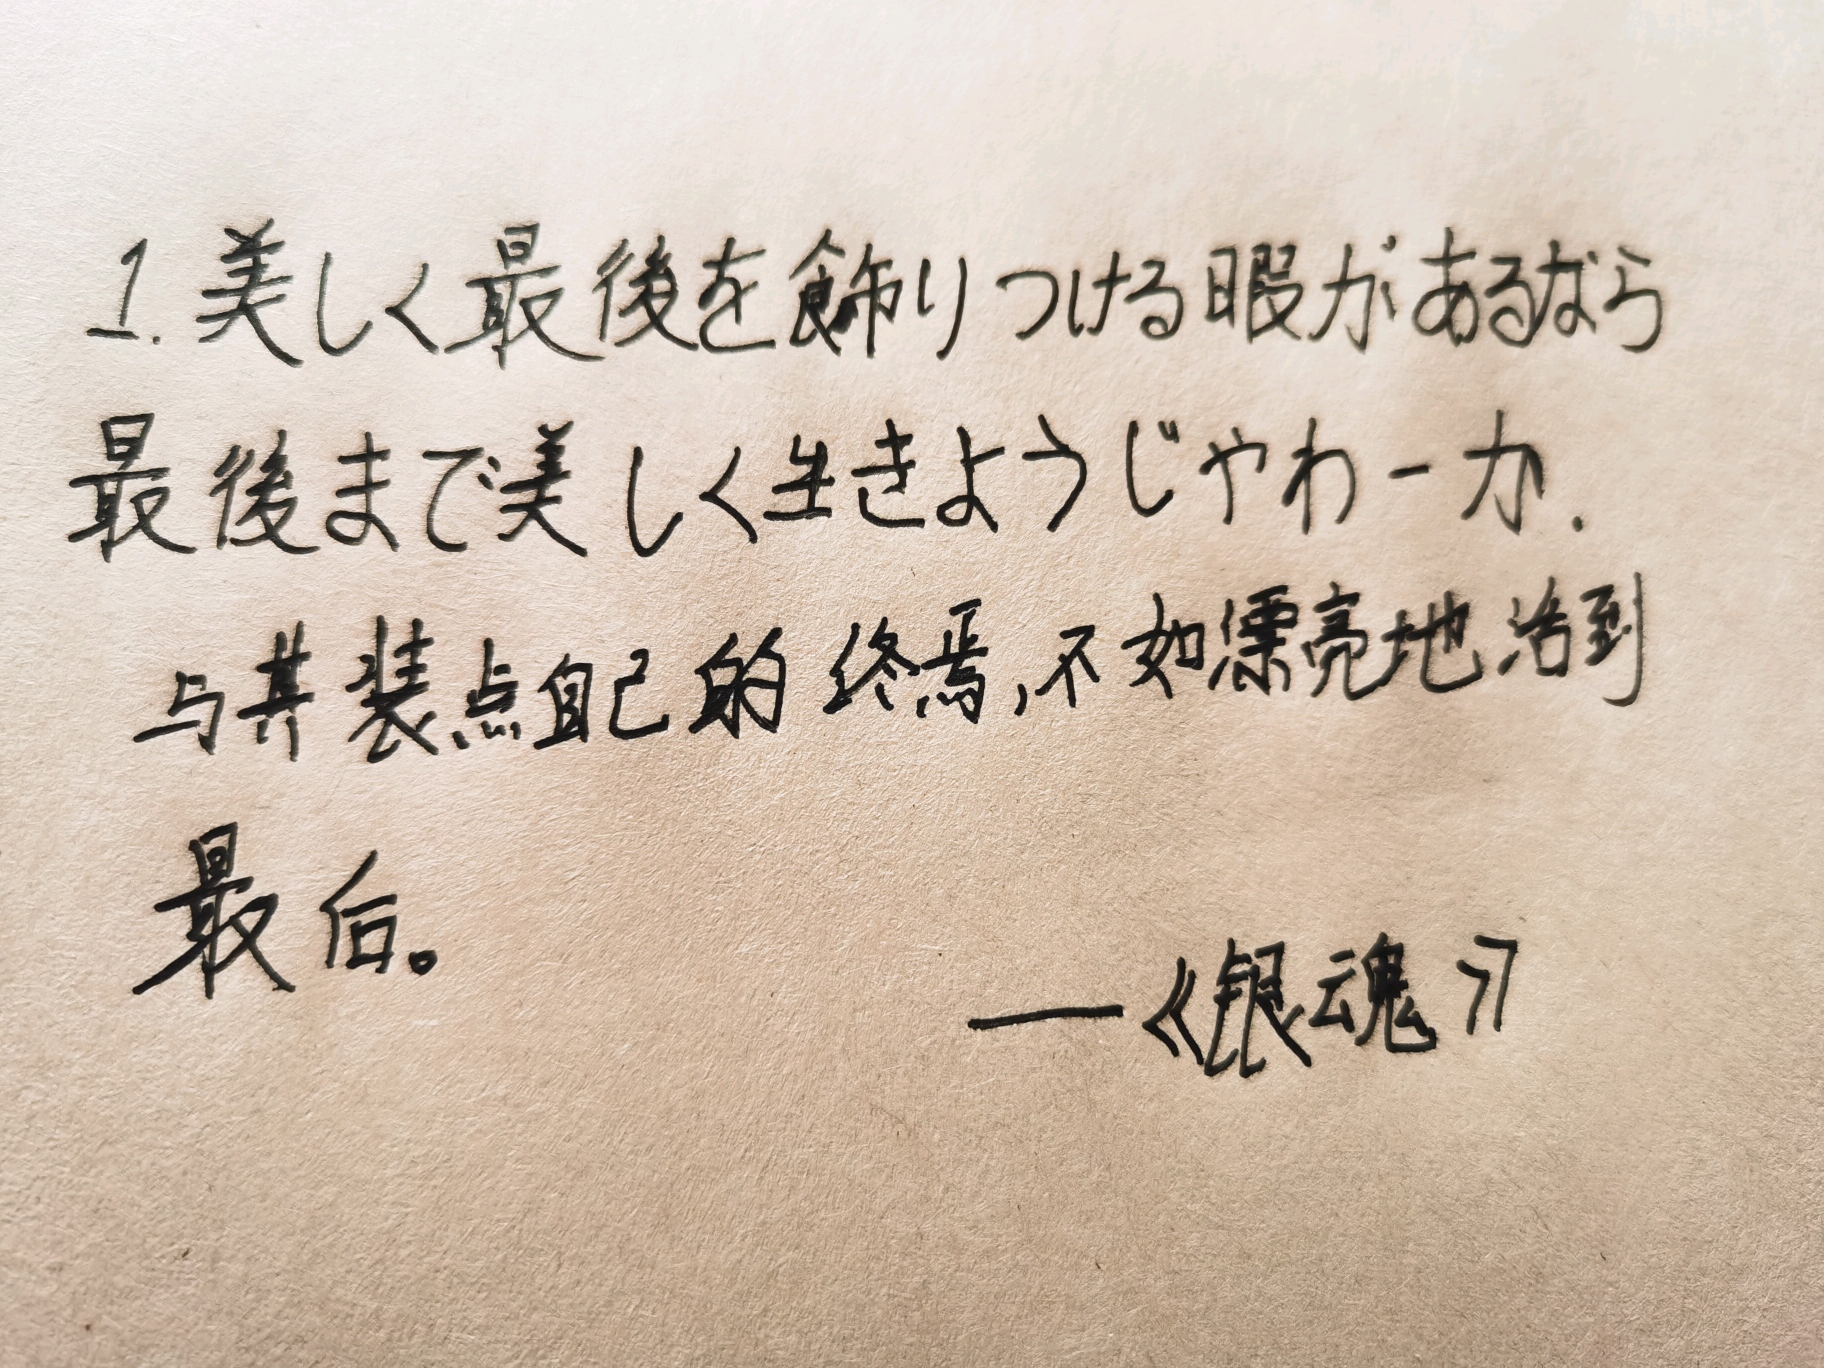 1.美しく最後を飾りつける暇があるなら
最後まで美しく生きようじゃわーか.
与其装点自己的终焉,不如漂亮地活到
最后。
—《银魂》